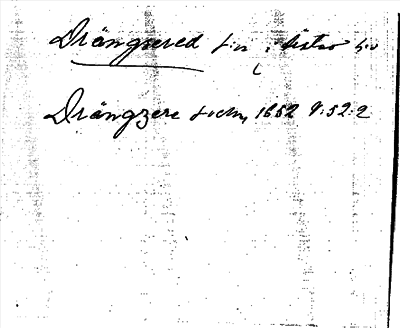 Drängsered s:n i Årstad h:d
Drängzere sochn, 1652 9:52:2